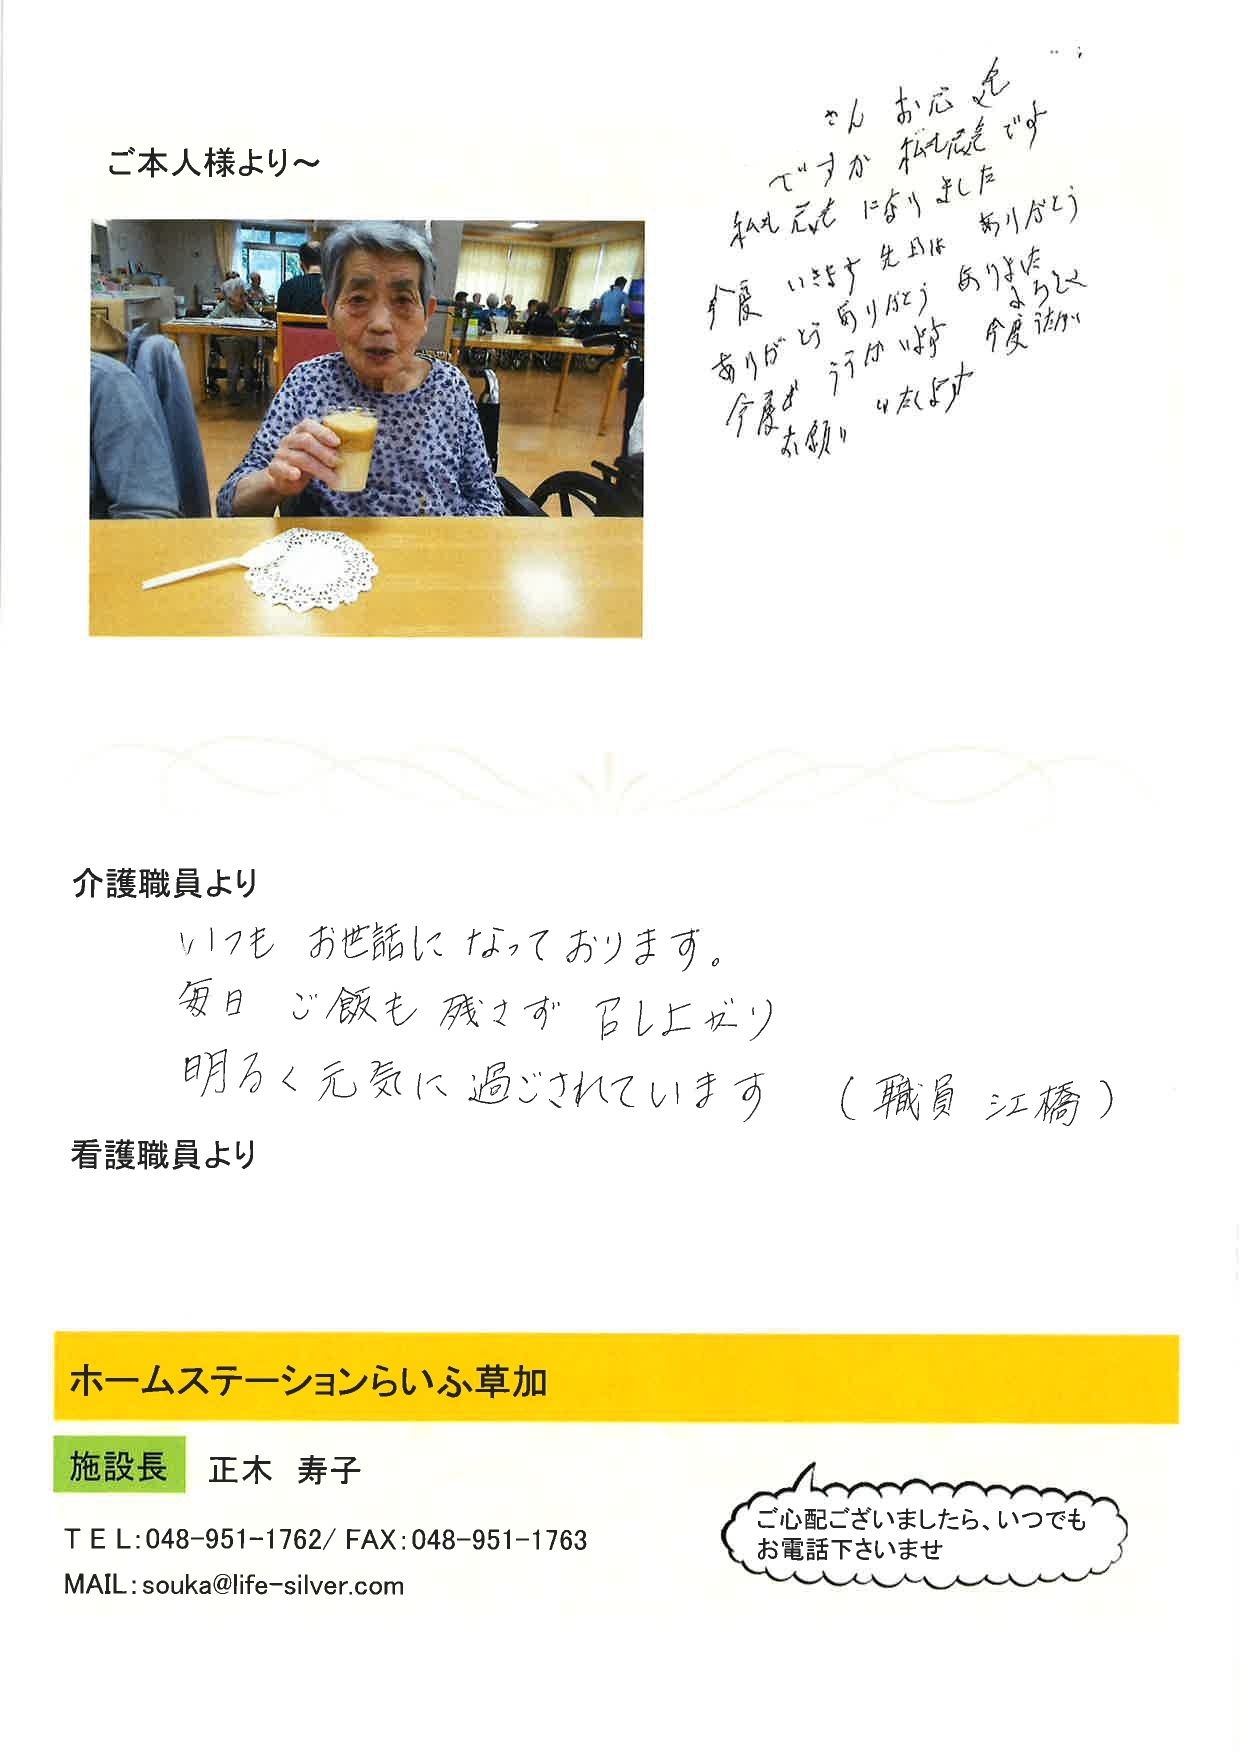 ご本人様より～
さん お元気
ですか 私も元気です
私も元気になりました
今度 いきます 先日は ありがとう
ありがとう ありがとう ありました
今度 今度
お願い いたします
介護職員より
いつも お世話に なっております。
毎日 ご飯も 残さず 召し上がり
明るく 元気に 過ごされています (職員 江橋)
看護職員より
ホームステーションらいふ草加
施設長 正木 寿子
TEL:048-951-1762/ FAX:048-951-1763
MAIL:souka@life-silver.com
ご心配ございましたら、いつでも
お電話下さいませ